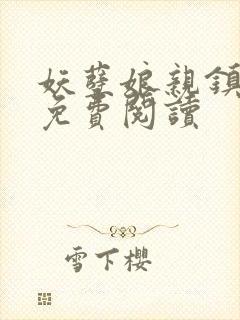 妖孽娘親鎮
免費閱讀
雪下櫻